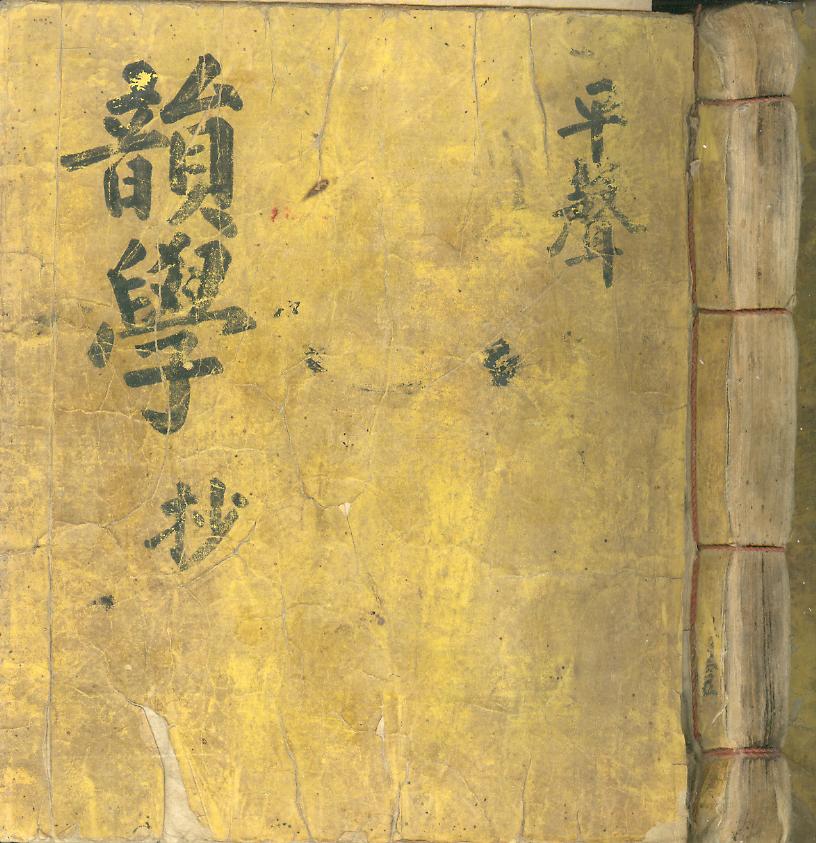 平聲
韻學抄